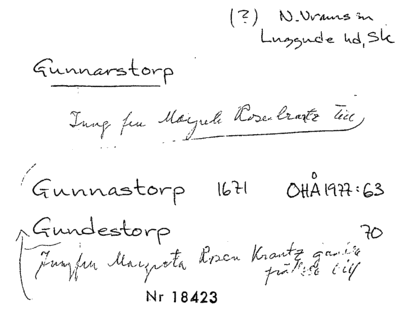 (?) N. Vrams sn
Luggude hd, Sk
Gunnarstorp
Jungfru Margrete Rosenkrantz till
Gunnastorp 1671 OHÅ 1977:63
Gundestorp 70
Jungfru Margreta Rosen Krantz till
Nr 18423